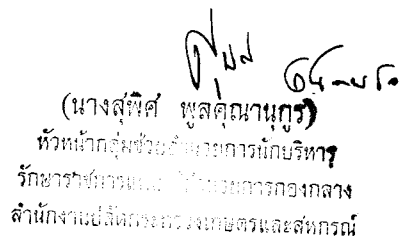 (นางสุพิศ พูลคุณานุกูร)
หัวหน้ากลุ่มช่วยอำนวยการนักบริหาร
รักษาราชการแทน ผู้อำนวยการกองกลาง
สำนักงานปลัดกระทรวงเกษตรและสหกรณ์